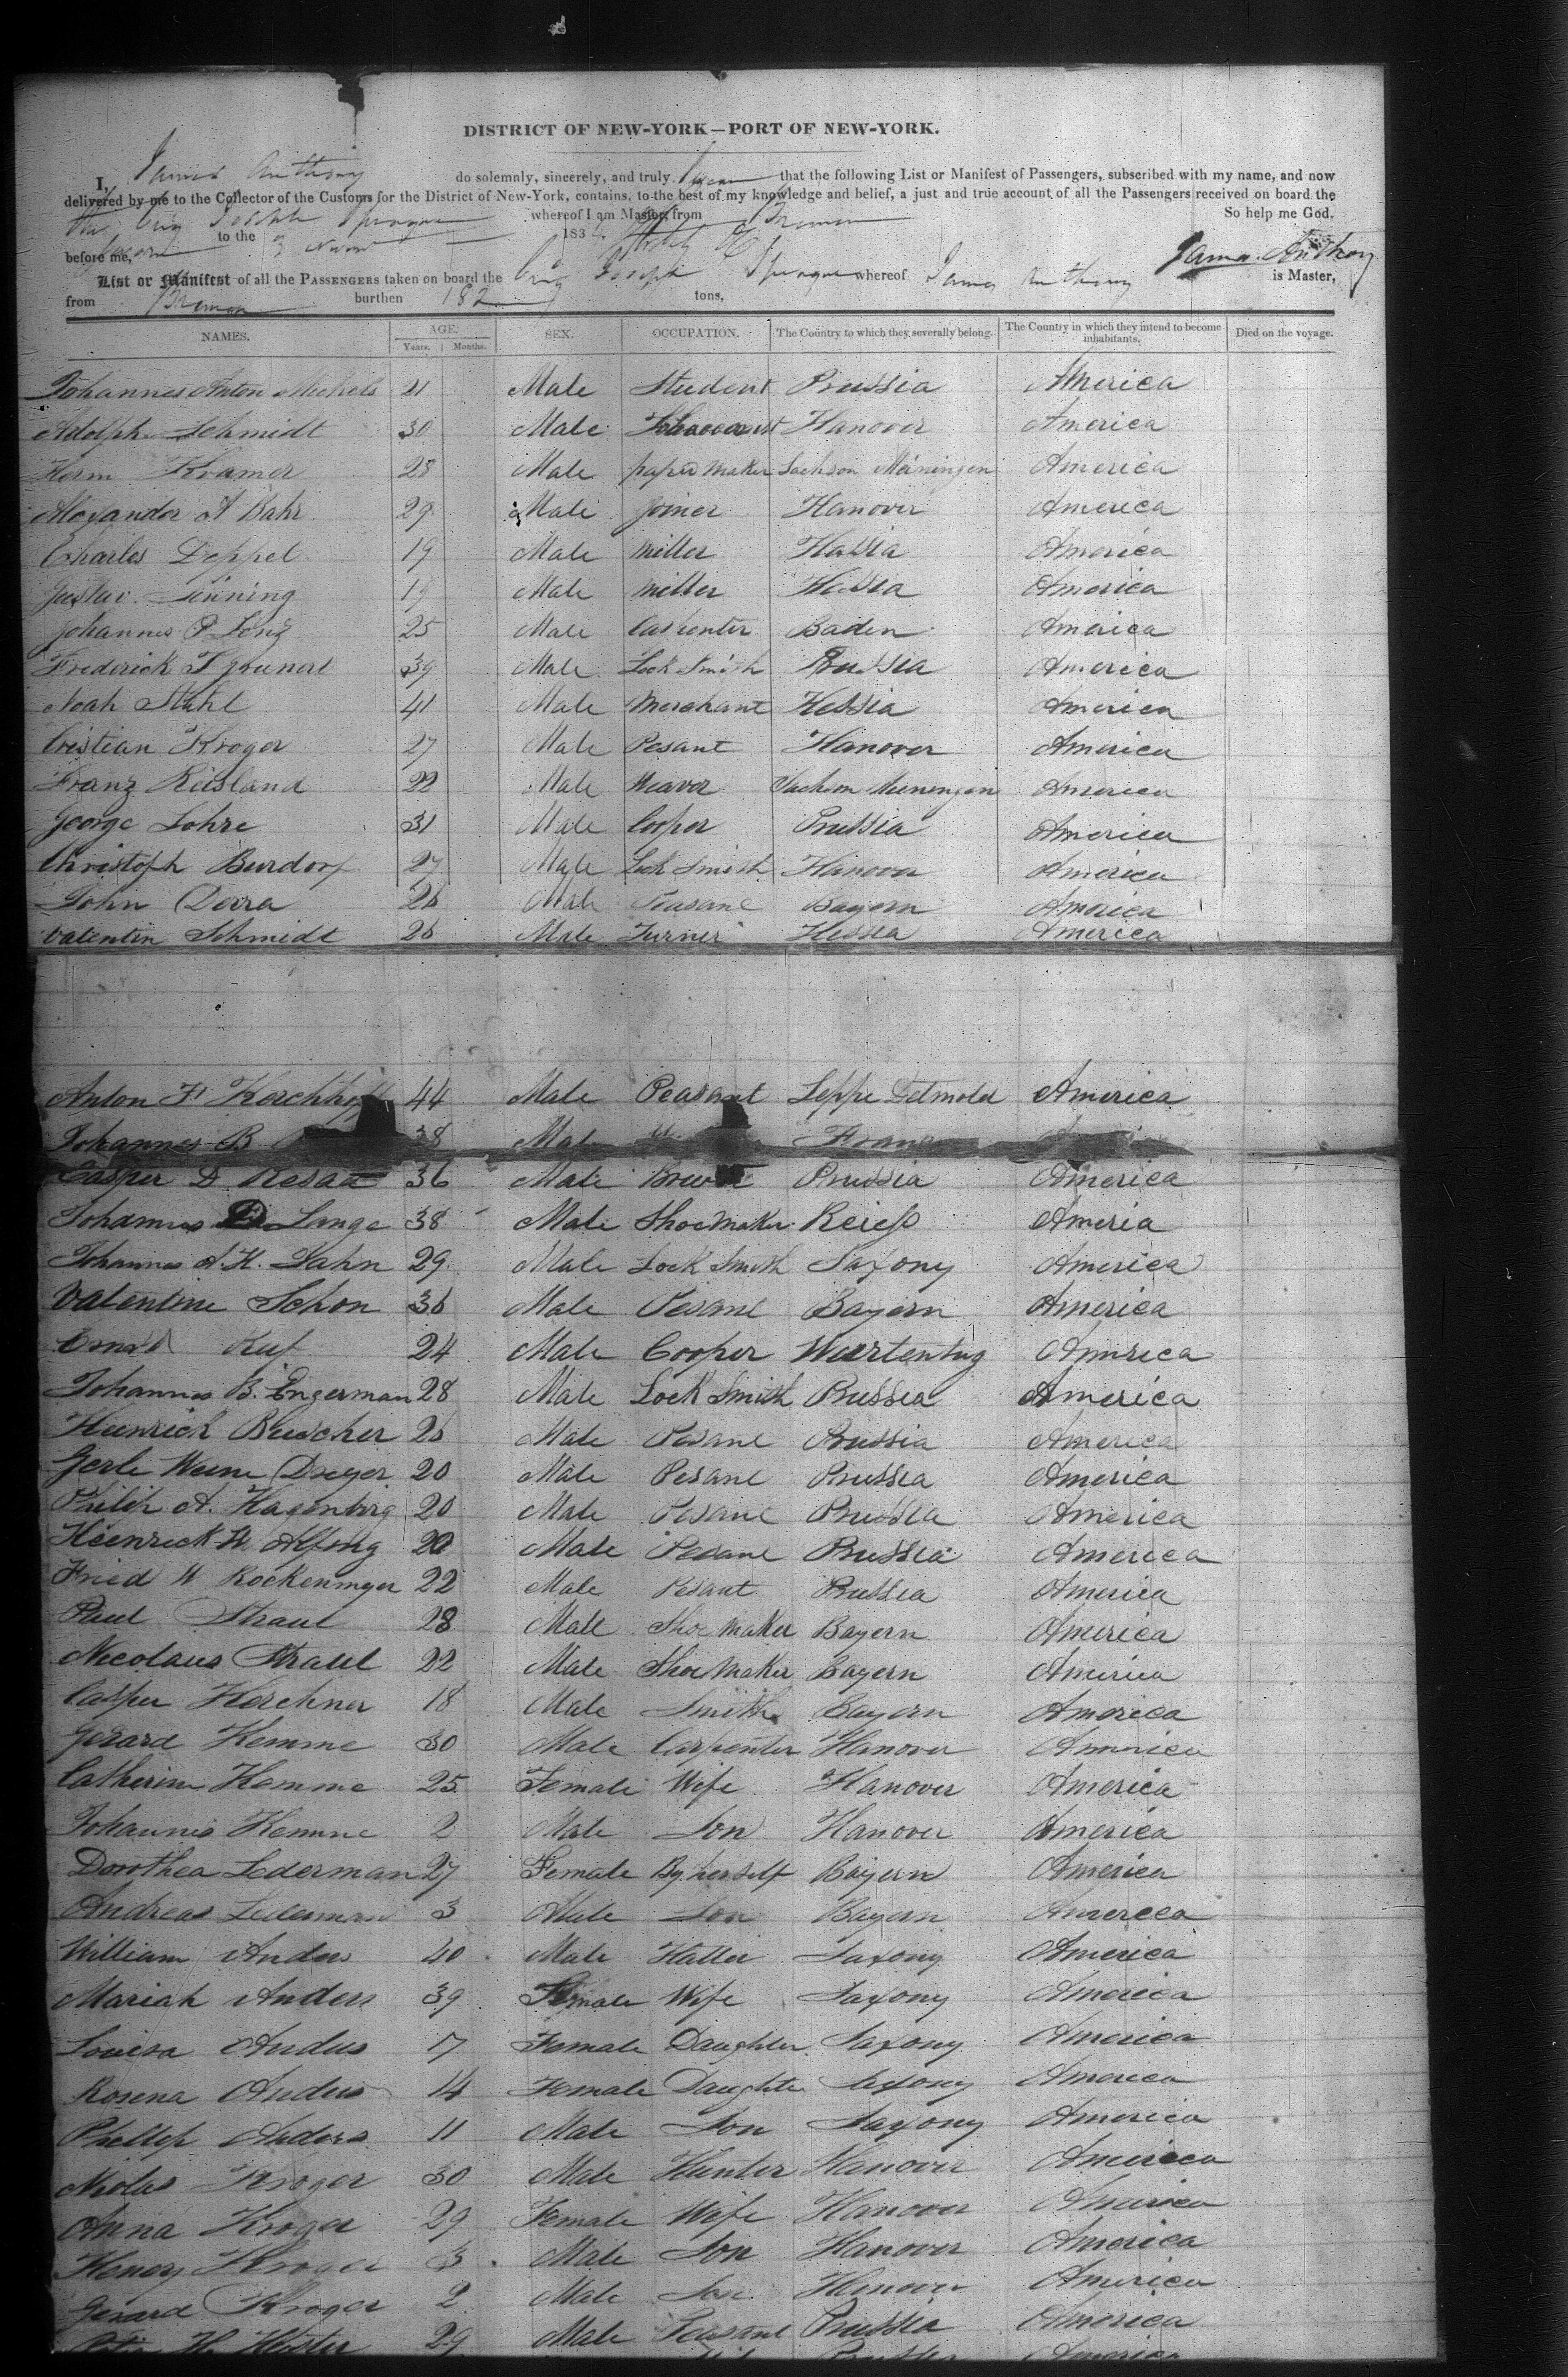 DISTRICT OF NEW-YORK—PORT OF NEW-YORK.
I, James Anthony do solemnly, sincerely, and truly that the following List or Manifest of Passengers, subscribed with my name, and now
delivered by me to the Collector of the Customs for the District of New-York, contains, to the best of my knowledge and belief, a just and true account of all the Passengers received on board the
the Brig Joseph Sprague whereof I am Master, from Bremen So help me God.
to the 183
before me, James Anthony
List or Manifest of all the PASSENGERS taken on board the Brig Joseph Sprague whereof James Anthony is Master,
from Bremen burthen 182 tons,
NAMES. AGE. SEX. OCCUPATION. The Country to which they severally belong. The Country in which they intend to become inhabitants. Died on the voyage.
Years. Months.
Johannes Anton Michels 21 Male Student Prussia America
Adolph Schmidt 30 Male Hanover America
Herm Kramer 28 Male paper maker Sachson Meiningen America
Alexander A Bahr 29 Male Joiner Hanover America
Charles Deppel 19 Male Miller Hassia America
Gustav. Sinning 19 Male Miller Hessia America
Johannes P Long 25 Male Baden America
Frederick 39 Male Lock Smith Prussia America
Noah Stahl 41 Male Merchant Hessia America
Cristian Kroger 27 Male Pesant Hanover America
Franz Reisland 22 Male Weaver America
George Lohre 31 Male Cooper Prussia America
Christoph Burdorf 27 Male Lock Smith Hanover America
John Derra 26 Male Peasant Bayern America
Valentin Schmidt 26 Male Turner Hessia America
Anton F Kerchhoff 44 Male Peasant Leppe Detmold America
Johannes B 38 Male
Casper D Resaa 36 Male Prussia America
Johannes Lange 38 Male Shoemaker Reiess Ameria
Johannes A. H. Lahn 29 Male Lock Smith Saxony America
Valentine Schon 36 Male Pesant Bayern America
Ruf 24 Male Cooper Wurtenbug America
Johannes B. Engerman 28 Male Lock Smith Prussia America
Heinrich Buscher 26 Male Pesant Prussia America
Dreyer 20 Male Pesant Prussia America
Philip A. Hagenbirg 20 Male Pesant Prussia America
Heinrich W Alfing 20 Male Pesant Prussia America
Fried W Rockenmyer 22 Male Pesant Prussia America
Paul Straul 28 Male Shoe maker Bayern America
Nicolaus Straul 22 Male Shoe maker Bayern America
Casper Kerchner 18 Male Smith Bayern America
Gerard Hemme 30 Male Carpenter Hanover America
Catherine Hemme 25 Female Wife Hanover America
Johannes Hemme 2 Male Son Hanover America
Dorothea Lederman 27 Female By herself Bayern America
Andreas Lederman 3 Male Son Bayern America
William Anders 40 Male Hatter Saxony America
Mariah Anders 39 Female Wife Saxony America
Louisa Anders 17 Female Daughter Saxony America
Rosena Anders 14 Female Daughter Saxony America
Phillip Anders 11 Male Son Saxony America
Kroger 30 Male Hunter Hanover America
Anna Kroger 29 Female Wife Hanover America
Henry Kroger 3 Male Son Hanover America
Gerard Kroger 2 Male Son Hanover America
H. Hester 29 Male Peasant Prussia America